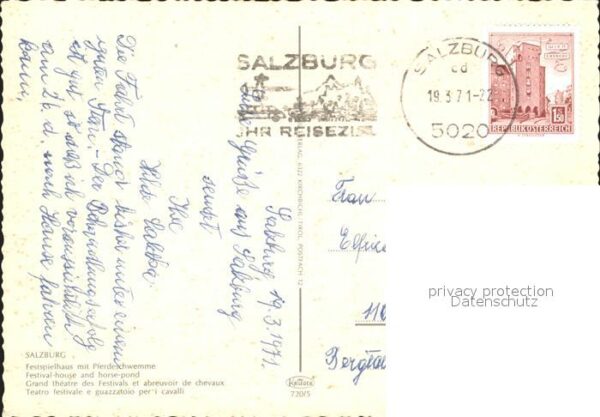 SALZBURG
IHR REISEZIEL
SALZBURG
cd
19.3.71-22
5020
1.50
REPUBLIK ÖSTERREICH
Salzburg 19.3.1971.
Liebe Grüße aus Salzburg
sendet
Ihre
Die Fahrt stand bisher unter einem
guten Stern. - Der Behandlungserfolg
ist gut, so daß ich voraussichtlich
am 26. d. nach Hause fahren
kann.
VERLAG 6322 KIRCHBICHL TIROL POSTFACH 12
Frau
Elfrie
Bergla
privacy protection
Datenschutz
SALZBURG
Festspielhaus mit Pferdeschwemme
Festival-house and horse-pond
Grand théatre des Festivals et abreuvoir de chevaux
Teatro festivale e guazzatoio per i cavalli
720/5